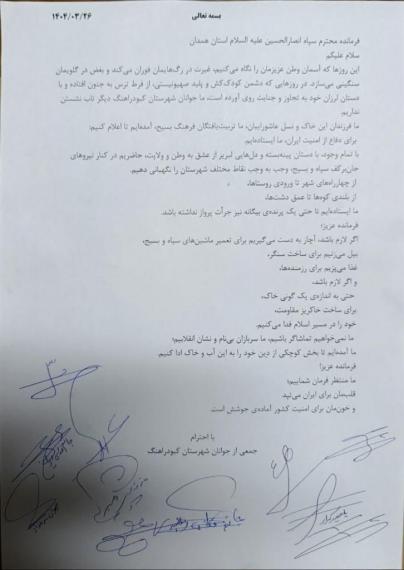 بسمه تعالی
۱۴۰۴/۰۳/۲۶
فرمانده محترم سپاه انصارالحسین علیه السلام استان همدان
سلام علیکم
این روزها که آسمان وطن عزیزمان را نگاه می‌کنیم، غیرت در رگ‌هایمان فوران می‌کند و بغض در گلویمان
سنگینی می‌سازد. در روزهایی که دشمن کودک‌کش و پلید صهیونیستی، از فرط ترس به جنون افتاده و با
دستان لرزان خود به تجاوز و جنایت روی آورده است، ما جوانان شهرستان کبودراهنگ دیگر تاب نشستن
نداریم.
ما فرزندان این خاک و نسل عاشوراییان، ما تربیت‌یافتگان فرهنگ بسیج، آمده‌ایم تا اعلام کنیم:
برای دفاع از امنیت ایران، ما ایستاده‌ایم.
با تمام وجود، با دستان پینه‌بسته و دل‌هایی لبریز از عشق به وطن و ولایت، حاضریم در کنار نیروهای
جان‌برکف سپاه و بسیج، وجب به وجب نقاط مختلف شهرستان را نگهبانی دهیم.
از چهارراه‌های شهر تا ورودی روستاها،
از بلندی کوه‌ها تا عمق دشت‌ها،
ما ایستاده‌ایم تا حتی یک پرنده‌ی بیگانه نیز جرأت پرواز نداشته باشد.
فرمانده عزیز!
اگر لازم باشد، آچار به دست می‌گیریم برای تعمیر ماشین‌های سپاه و بسیج،
بیل می‌زنیم برای ساخت سنگر،
غذا می‌پزیم برای رزمنده‌ها،
و اگر لازم باشد،
حتی به اندازه‌ی یک گونی خاک،
برای ساخت خاکریز مقاومت،
خود را در مسیر اسلام فدا می‌کنیم.
ما نمی‌خواهیم تماشاگر باشیم، ما سربازان بی‌نام و نشان انقلابیم؛
ما آمده‌ایم تا بخش کوچکی از دین خود را به این آب و خاک ادا کنیم.
فرمانده عزیز!
ما منتظر فرمان شماییم؛
قلب‌مان برای ایران می‌تپد
و خون‌مان برای امنیت کشور آماده‌ی جوشش است
با احترام
جمعی از جوانان شهرستان کبودراهنگ